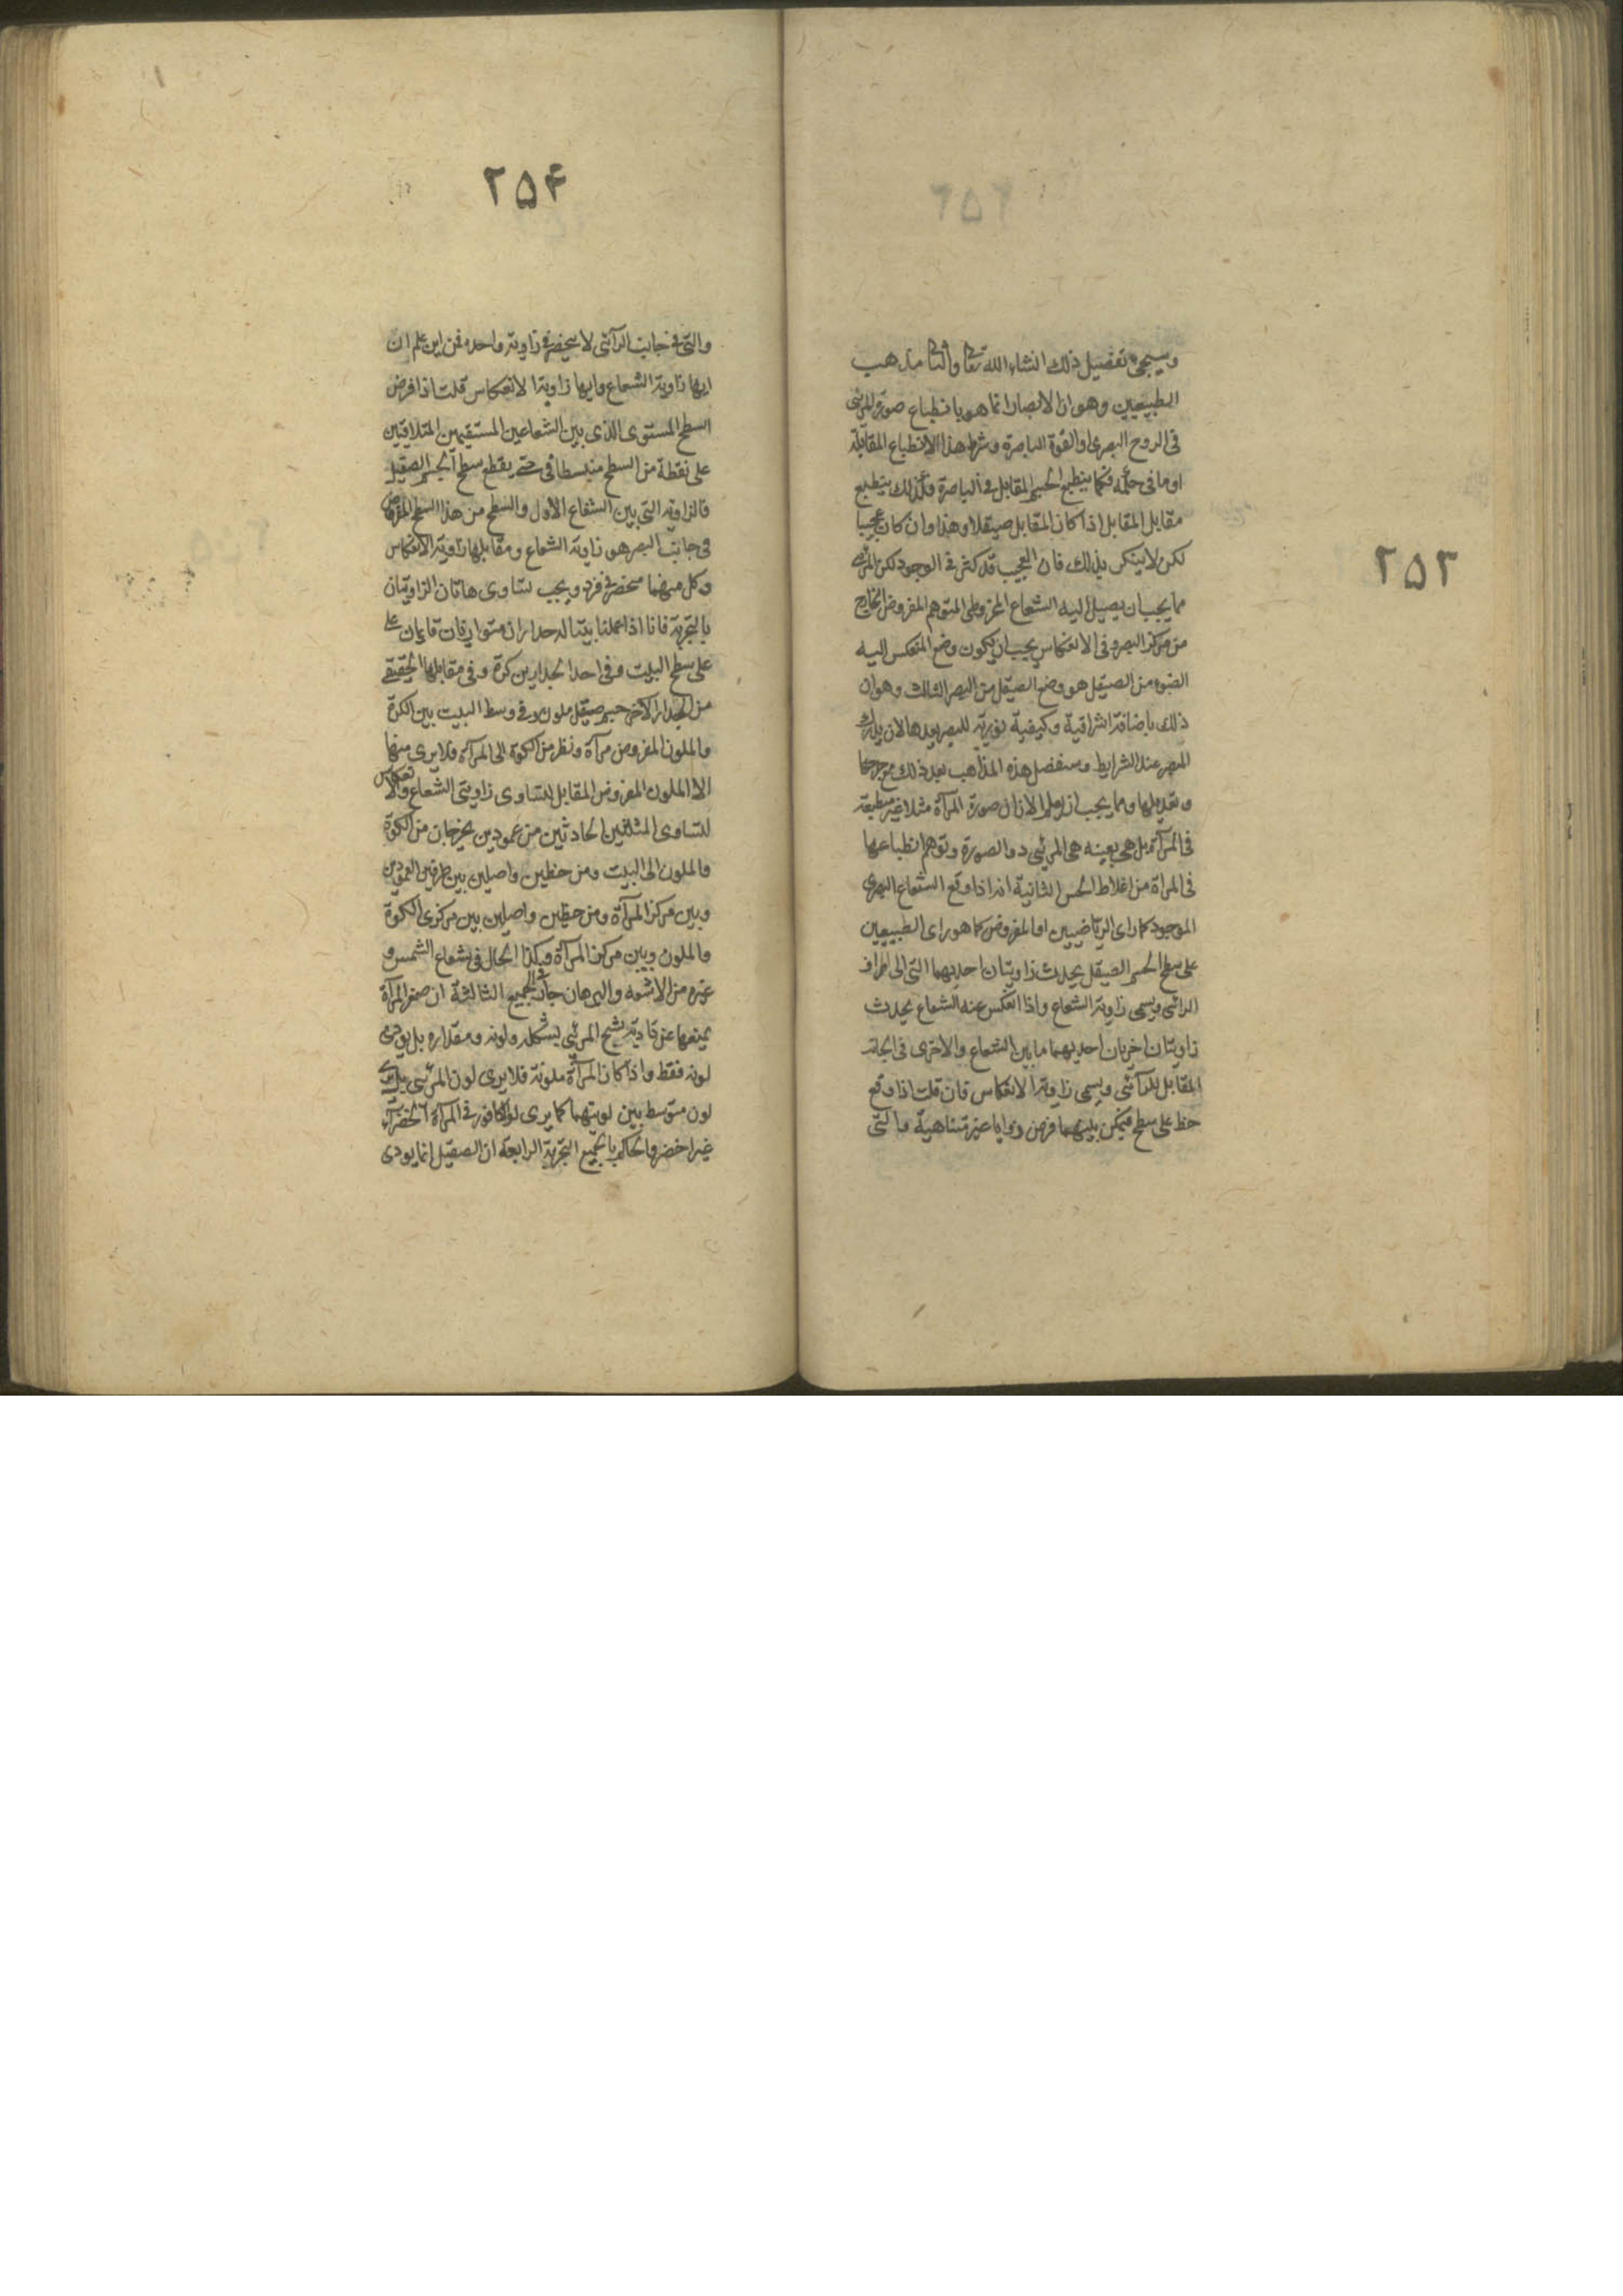 ٢٥٣
وسيجىء تفصيل ذلك انشاء الله تعالى والثانى مذهب
الطبيعيين وهو ان الابصار انما هو بانطباع صورة المرئى
فى الروح البصرى او القوة الباصرة وشرط هذا الانطباع المقابلة
او ما فى حكمه فكما ينطبع الجسم المقابل فى الباصرة فكذلك ينطبع
مقابل المقابل اذا كان المقابل صيقلا وهذا وان كان عجيبا
لكن لا ينكر بذلك فان العجيب قد كثر فى الوجود لكن المرئى
مما يجب ان يصل اليه الشعاع المخروطى المتوهم المفروض الخارج
من مركز البصر وفى الانعكاس يجب ان يكون وضع المنعكس اليه
الضوء من الصيقل هو وضع الصيقل من البصر الثالث وهو ان
ذلك باضافة اشراقية وكيفية نورية للبصر بعدها لان يدرك
المبصر عند الشرايط وسنفصل هذه المذاهب بعد ذلك مع جرحها
وتعديلها ومما يجب ان يعلم الان ان صورة المرآة مثلا غير منطبعة
فى المرآة بل هى بعينه هى المرئى ذو الصورة وتوهم انطباعها
فى المراة من اغلاط الحس الثانية انه اذا وقع الشعاع البصرى
الموجود كما راى الرياضيين او المفروض كما هو راى الطبيعيين
على سطح الجسم الصيقل يحدث زاويتان احديهما التى الى اطراف
الرائى ويسمى زاوية الشعاع واذا انعكس عنه الشعاع يحدث
زاويتان اخريان احديهما ما بين الشعاع والاخرى فى الجانب
المقابل للرآئى ويسمى زاوية الانعكاس فان قلت اذا وقع
خط على سطح فيمكن بينهما فرض زوايا غير متناهية والتى
٢٥۴
والتى فى جانب الرآئى لا ينحصر فى زاوية واحده فمن اين علم ان
ايها زاوية الشعاع وايها زاوية الانعكاس قلت اذا فرض
السطح المستوى الذى بين الشعاعين المستقيمين المتلاقيين
على نقطة من السطح منبسطا فى حتى يقطع سطح الجسم الصقيل
فالزاوية التى بين الشعاع الاول والسطح من هذا السطح المفروض
فى جانب البصر هو زاوية الشعاع ومقابلها زاوية الانعكاس
وكل منهما منحصر فى فرد ويجب تساوى هاتان الزاويتان
بالتجربة فانا اذا عملنا بيتا له جداران متوازيان قايمان على
على سطح البيت وفى احد الجدارين كوة وفى مقابلها الحقيقى
من الجدار الاخر جسم صيقل ملون وفى وسط البيت بين الكوة
والملون المفروض مرآة ونظر من الكوة الى المرآة فلا يرى منها
الا الملون المفروض المقابل لتساوى زاويتى الشعاع والانعكاس
لتساوى المثلثين الحادثين من عمودين يخرجان من الكوة
والملون الى البيت ومن خطين واصلين بين طرفين العمودين
وبين مركز المرآة ومن خطين واصلين بين مركزى الكوة
والملون وبين مركز المرآة وهكذا الحال فى شعاع الشمس و
غيره من الاشعه والبرهان جار فى الجميع الثالثة ان صغر المرآة
يمنعها عن تادية شبح المرئى بشكله ولونه ومقداره بل يودى
لونه فقط واذا كان المرآة ملونة فلا يرى لون المرئى بل يرى
لون متوسط بين لونيهما كما يرى لون الكافور فى المرآة الخضرآء
غير اخضر والحاكم بالجميع التجربة الرابعة ان الصقيل انما يودى